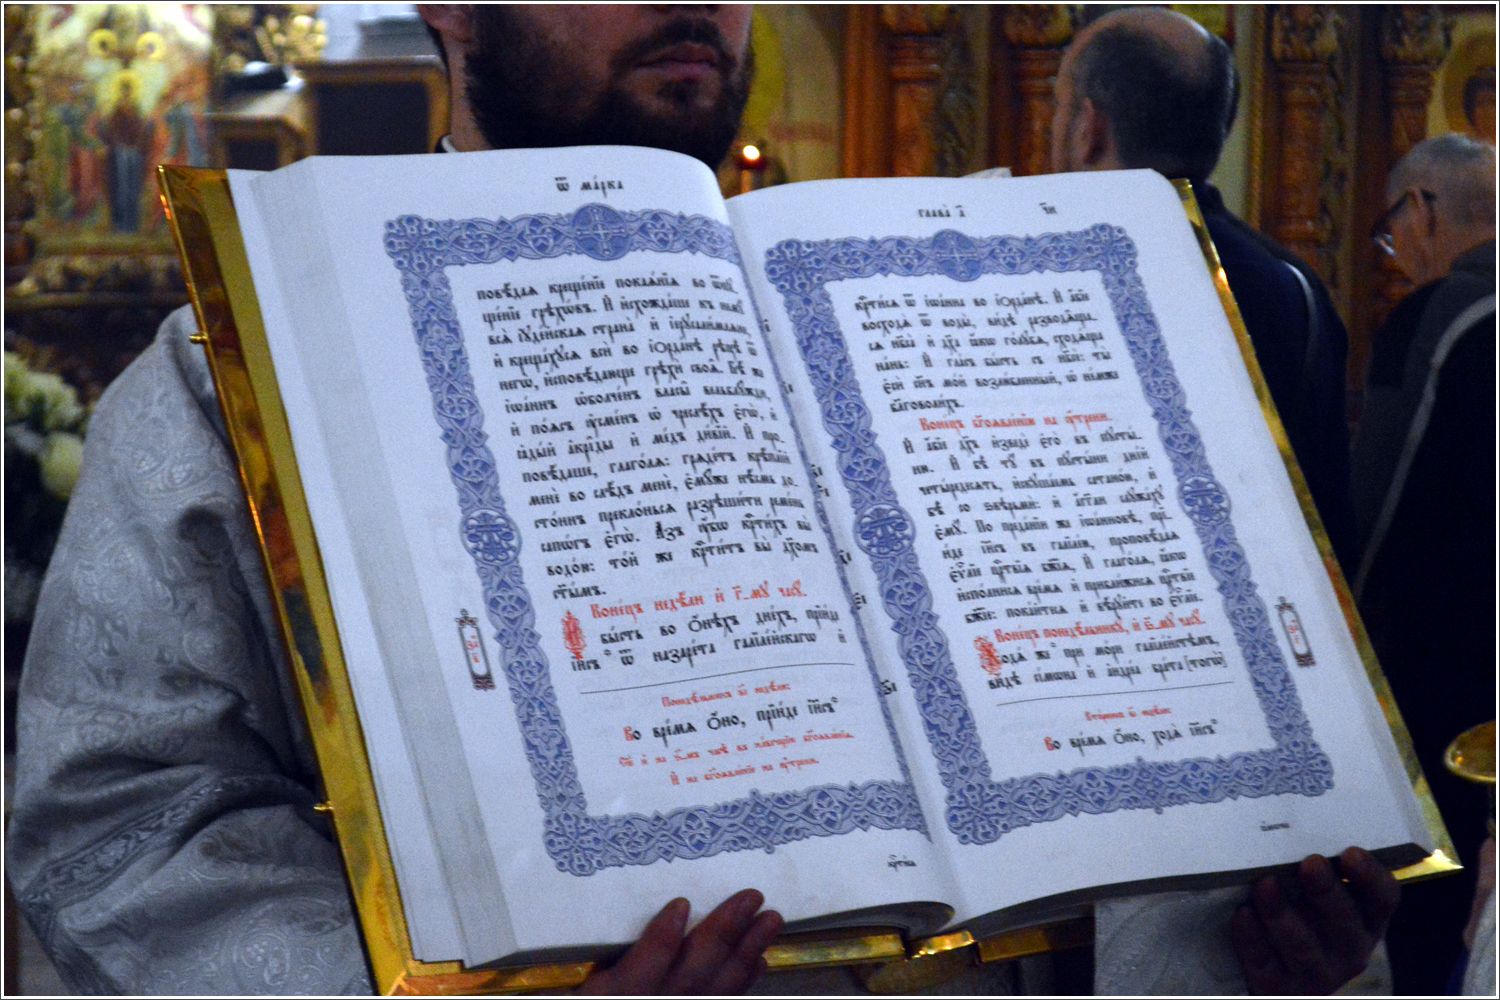 Ѿ ма́рка
повѣ́дая креще́нїе покая́нїя во ѿпꙋ-
ще́нїе грѣхѡ́въ. И҆ и҆схожда́ше къ немꙋ̀
всѧ̀ і҆ꙋде́йская страна̀ и҆ і҆ерⷭ҇лими́ѧне,
и҆ креща́хꙋсѧ всѝ во і҆ѻрда́нѣ рѣцѣ̀ ѿ
негѡ̀, и҆сповѣ́дающе грѣхѝ своѧ̑. Бѣ́ же
і҆ѡа́ннъ ѡ҆болче́нъ власы̑ вельблꙋ̑жди,
и҆ по́ѧсъ ᲂу҆сме́нъ ѡ҆ чре́слѣхъ є҆гѡ̀, и҆
ꙗ҆ды́й а҆кри́ды и҆ ме́дъ ди́вїй. И҆ про-
повѣ́даше, глаго́лѧ: грѧде́тъ крѣ́плїй
менє̀ во слѣ́дъ менє̀, є҆мꙋ́же нѣ́смь до-
сто́инъ прекло́ньсѧ разрѣши́ти реме́нь
сапѡ́гъ є҆гѡ̀. А҆́зъ ᲂу҆́бѡ крⷭ҇ти́хъ вы̀
водо́ю: то́й же крⷭ҇ти́тъ вы̀ дх҃омъ
ст҃ы́мъ.
Коне́цъ недѣ́ли и҆ г҃-мꙋ часꙋ̀.
бы́сть во ѻ҆́нѣхъ дне́хъ, прїи́де
і҆и҃съ ѿ назаре́та галїле́йскагѡ и҆
Понедѣ́льникъ
Во вре́мѧ ѻ҆́но, прїи́де і҆и҃съ
И҆ на бг҃оѧвле́нїе на ᲂу҆́трени.
крⷭ҇ти́сѧ
глава̀ а҃
крⷭ҇ти́сѧ ѿ і҆ѡа́нна во і҆ѻрда́нѣ. И҆ а҆́бїе
восходѧ̀ ѿ воды̀, ви́дѣ разводѧ́щѧ-
сѧ нб҃са̀ и҆ дх҃а ꙗ҆́кѡ го́лꙋбѧ, сходѧ́ща
на́нь: И҆ гла́съ бы́сть съ нб҃сѐ: ты̀
є҆сѝ сн҃ъ мо́й возлю́бленный, ѡ҆ не́мже
бл҃говоли́хъ.
Коне́цъ бг҃оѧвле́нїю на ᲂу҆́трени.
И҆ а҆́бїе дх҃ъ и҆зведѐ є҆го̀ въ пꙋсты́-
ню. И҆ бѣ̀ тꙋ̀ въ пꙋсты́ни дні́й
четы́редесѧть, и҆скꙋша́емь сатано́ю, и҆
бѣ̀ со ѕвѣрьмѝ: и҆ а҆́гг҃ли слꙋжа́хꙋ
є҆мꙋ̀. По преда́нїи же і҆ѡа́нновѣ, прїи́-
и́де і҆и҃съ въ галїле́ю, проповѣ́даѧ
є҆ѵⷢ҇лїе црⷭ҇твїѧ бж҃їѧ, И҆ глаго́лѧ, ꙗ҆́кѡ
и҆спо́лнисѧ вре́мѧ и҆ прибли́жисѧ црⷭ҇твїе
бж҃їе: пока́йтесѧ и҆ вѣ́рꙋйте во є҆ѵⷢ҇лїе.
Коне́цъ понедѣ́льникꙋ, и҆ є҃-мꙋ часꙋ̀.
ходѧ́ же при мо́ри галїле́йстѣмъ,
ви́дѣ сі́мѡна и҆ а҆ндре́а бра́та [тогѡ̀]
Вто́рникъ
Во вре́мѧ ѻ҆́но, ходѧ̀ і҆и҃съ